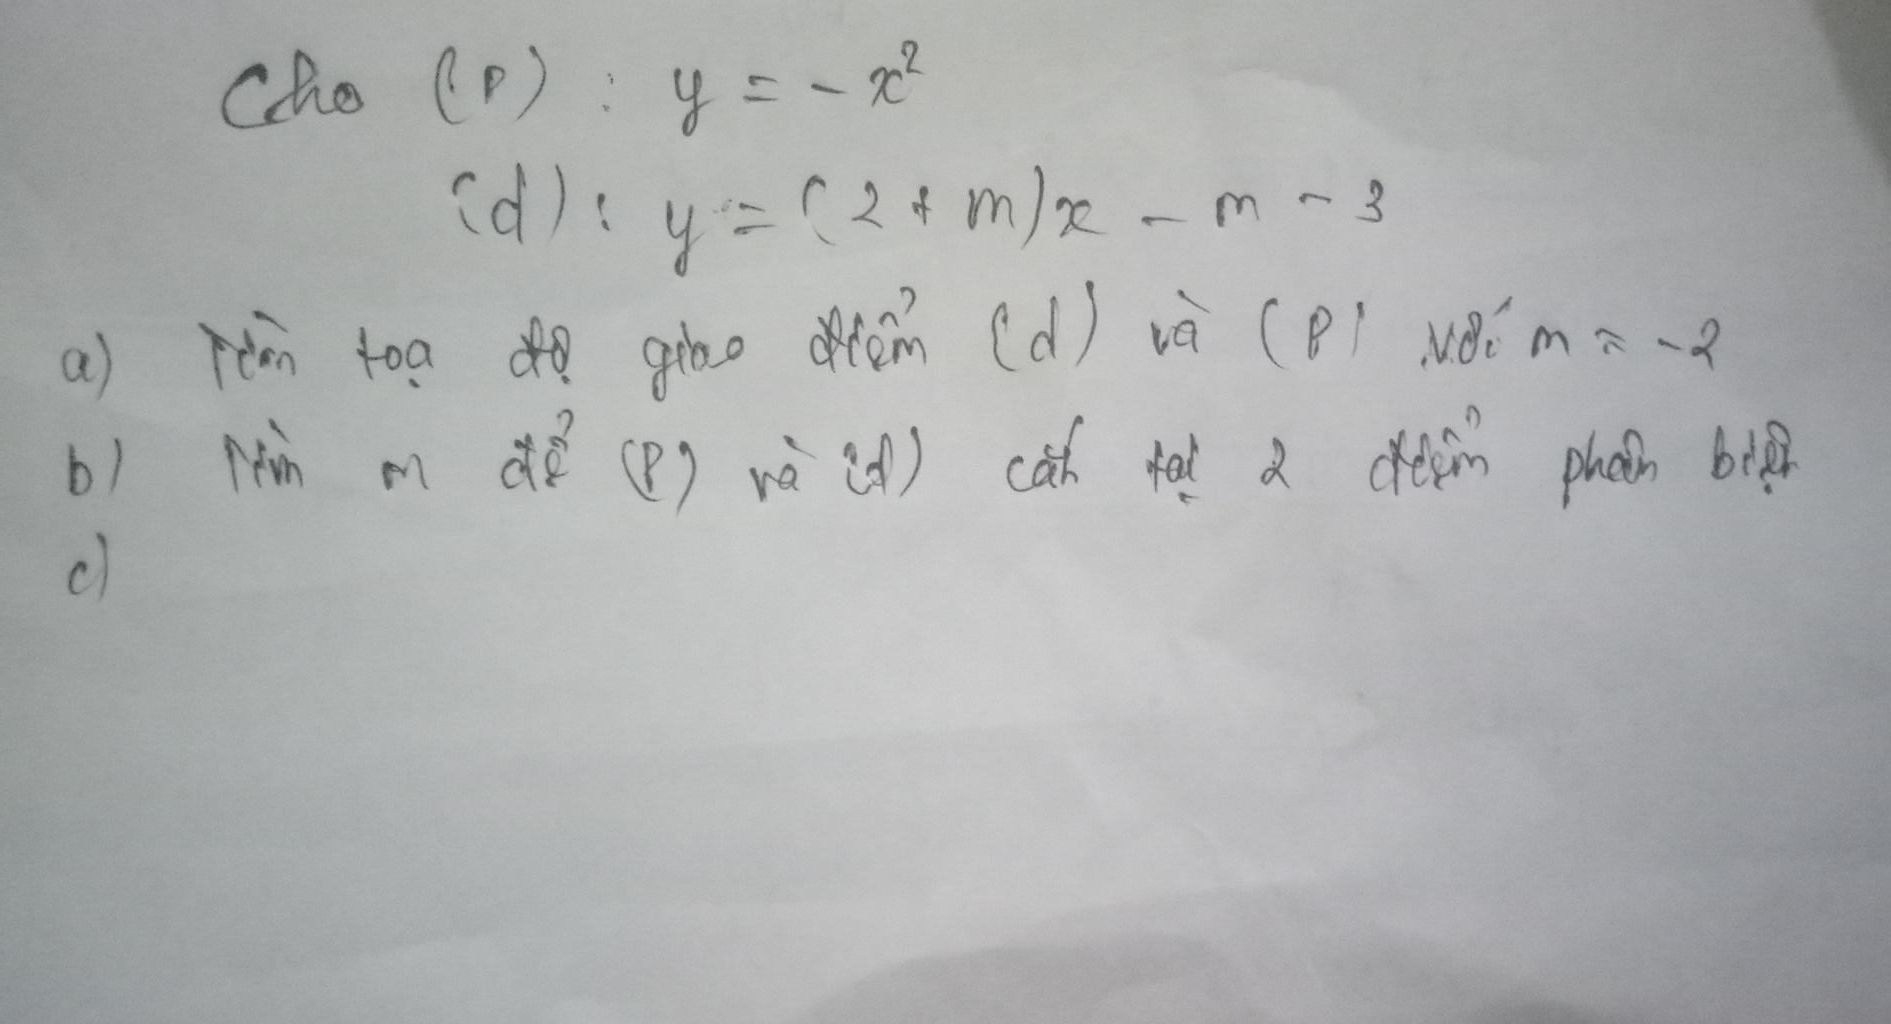 Cho (P) : y = - x²
(d) : y = (2 + m)x - m - 3
a) Tìm toạ độ giao điểm (d) và (P) với m = -2
b) Tìm m để (P) và (d) cắt tại 2 điểm phân biệt
c)